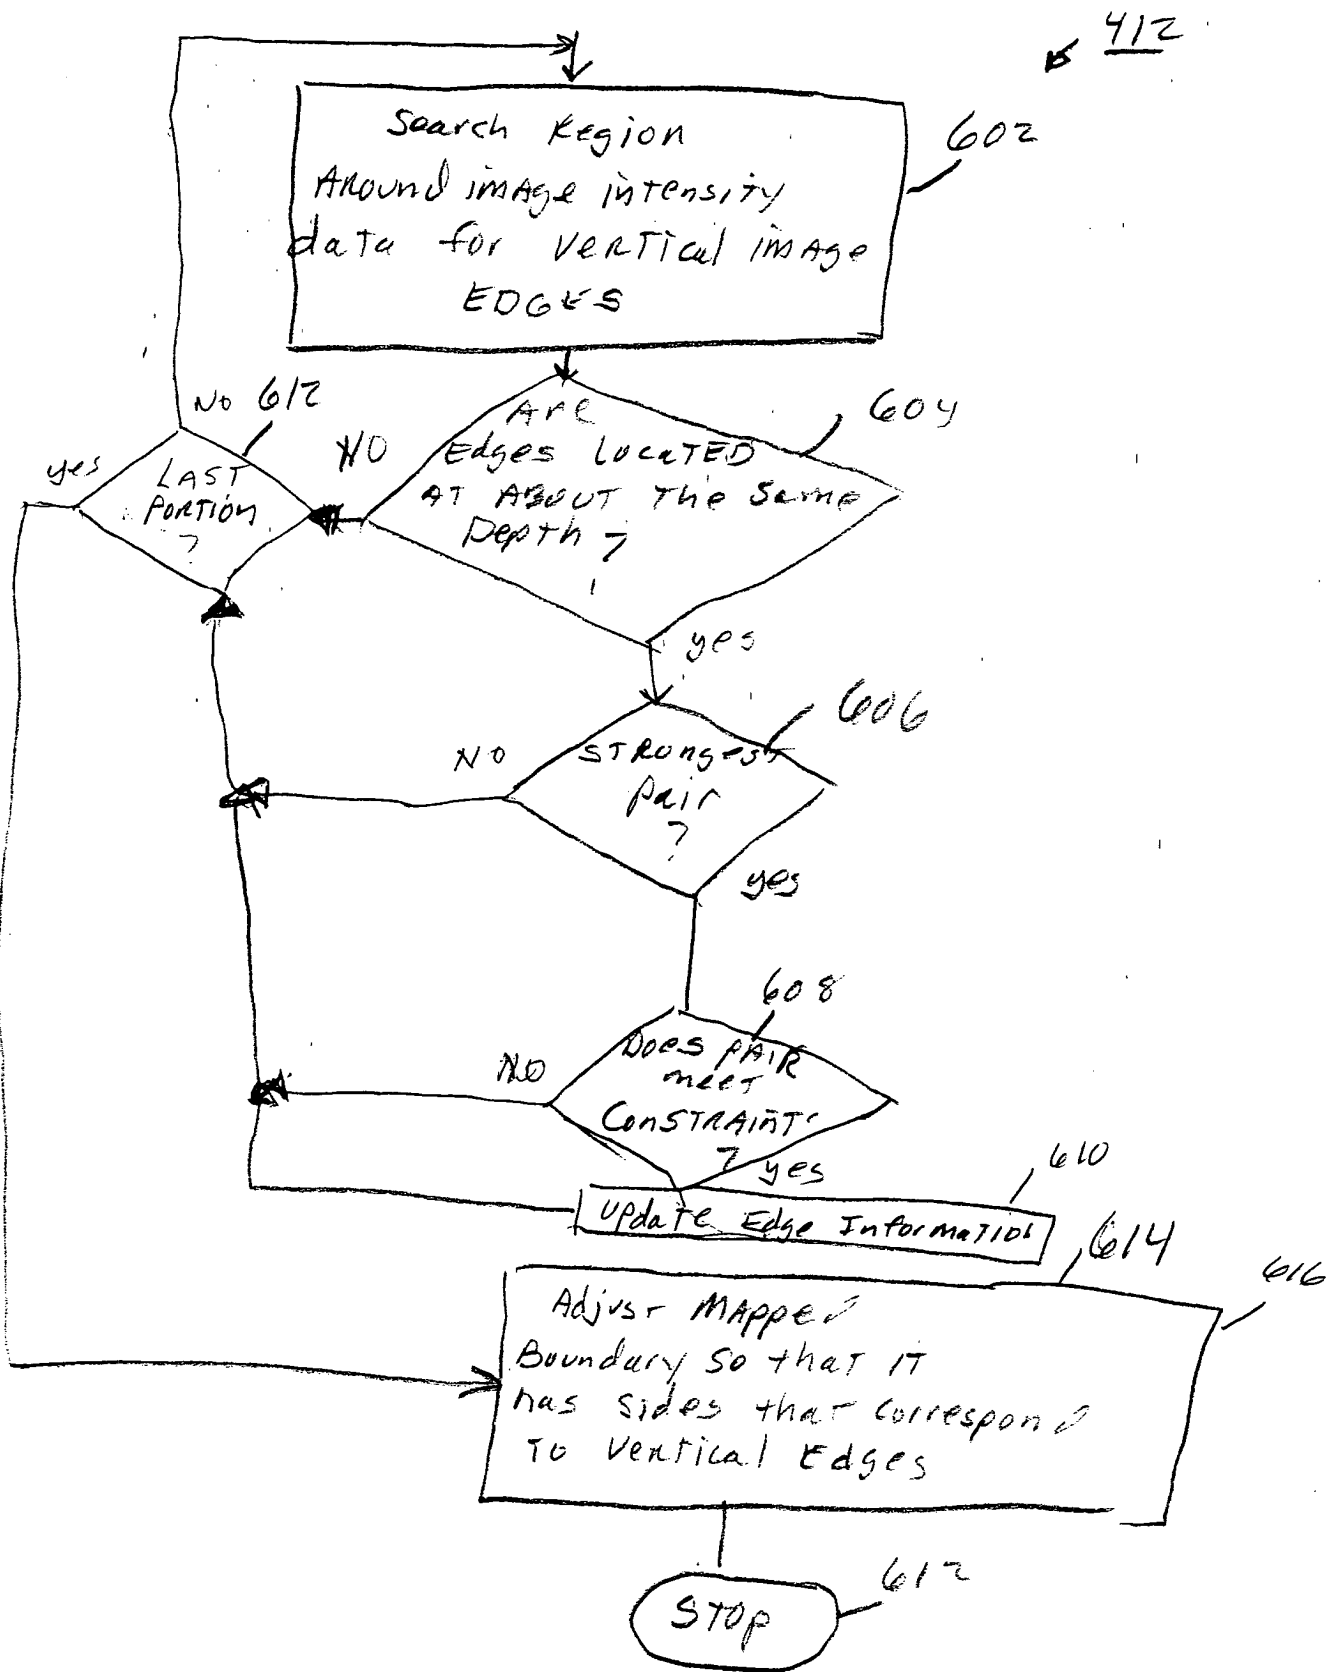 412
Search Region
Around image intensity
data for vertical image
EDGES
602
No 612
yes
LAST
PORTION
?
NO
Are
Edges Located
AT ABOUT The Same
Depth ?
604
yes
606
NO
STRongest
pair
?
yes
608
NO
Does PAIR
meet
ConSTRAINTS
? yes
610
Update Edge Information
614
616
Adjust Mapped
Boundary so that IT
has sides that correspond
To Vertical Edges
STOP
612